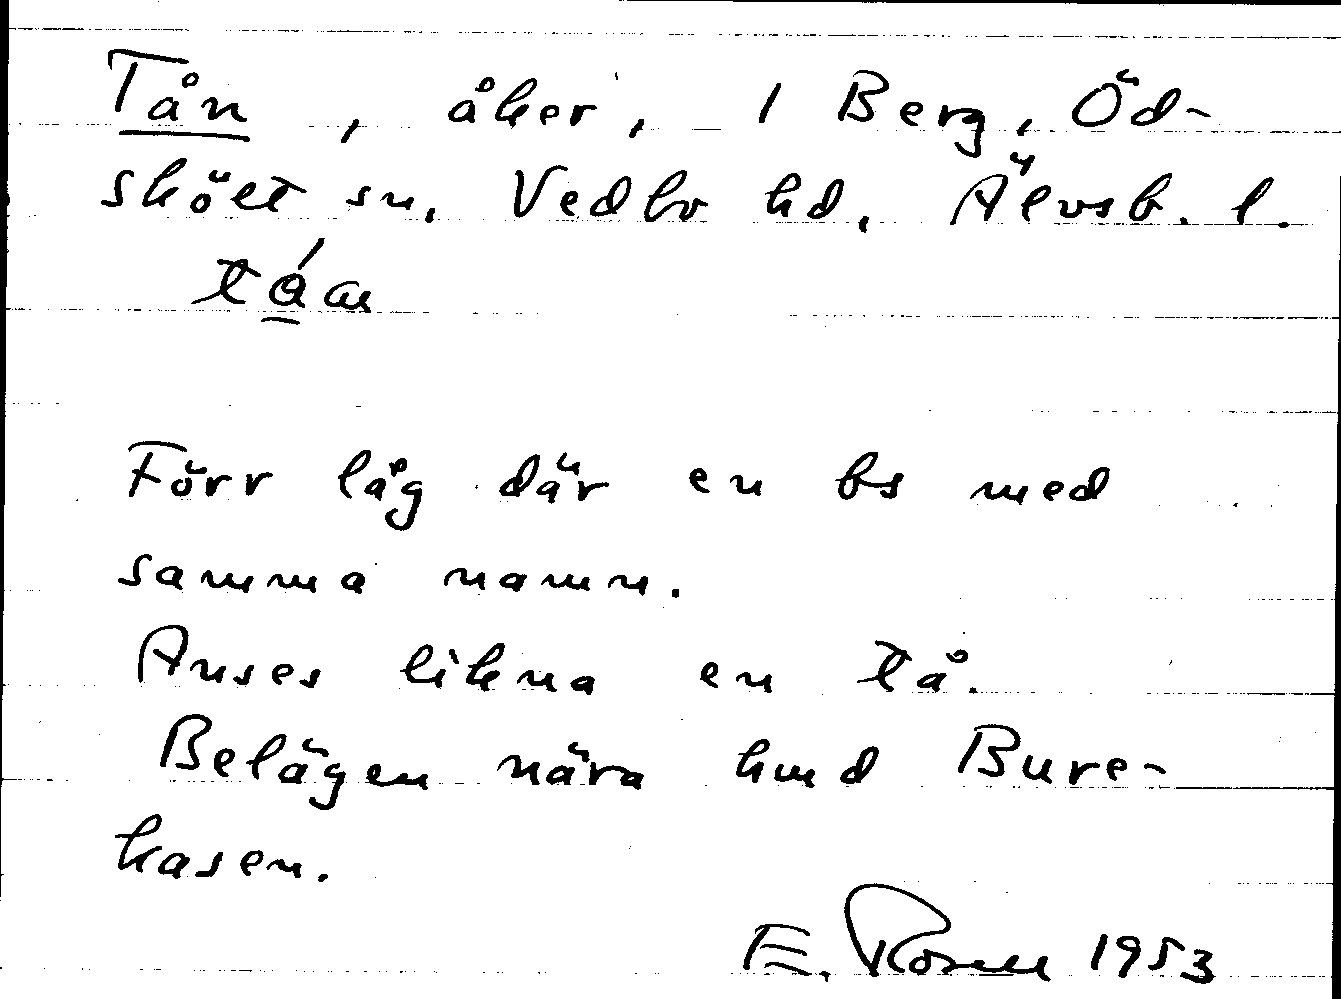 Tån, åker, 1 Berg, Öd-
skölt sn, Vedbo hd, Älvsb. l.
Förr låg där en bs med
samma namn.
Anses likna en tå.
Belägen nära hmd Bure-
kasen.
E. Rosell 1953